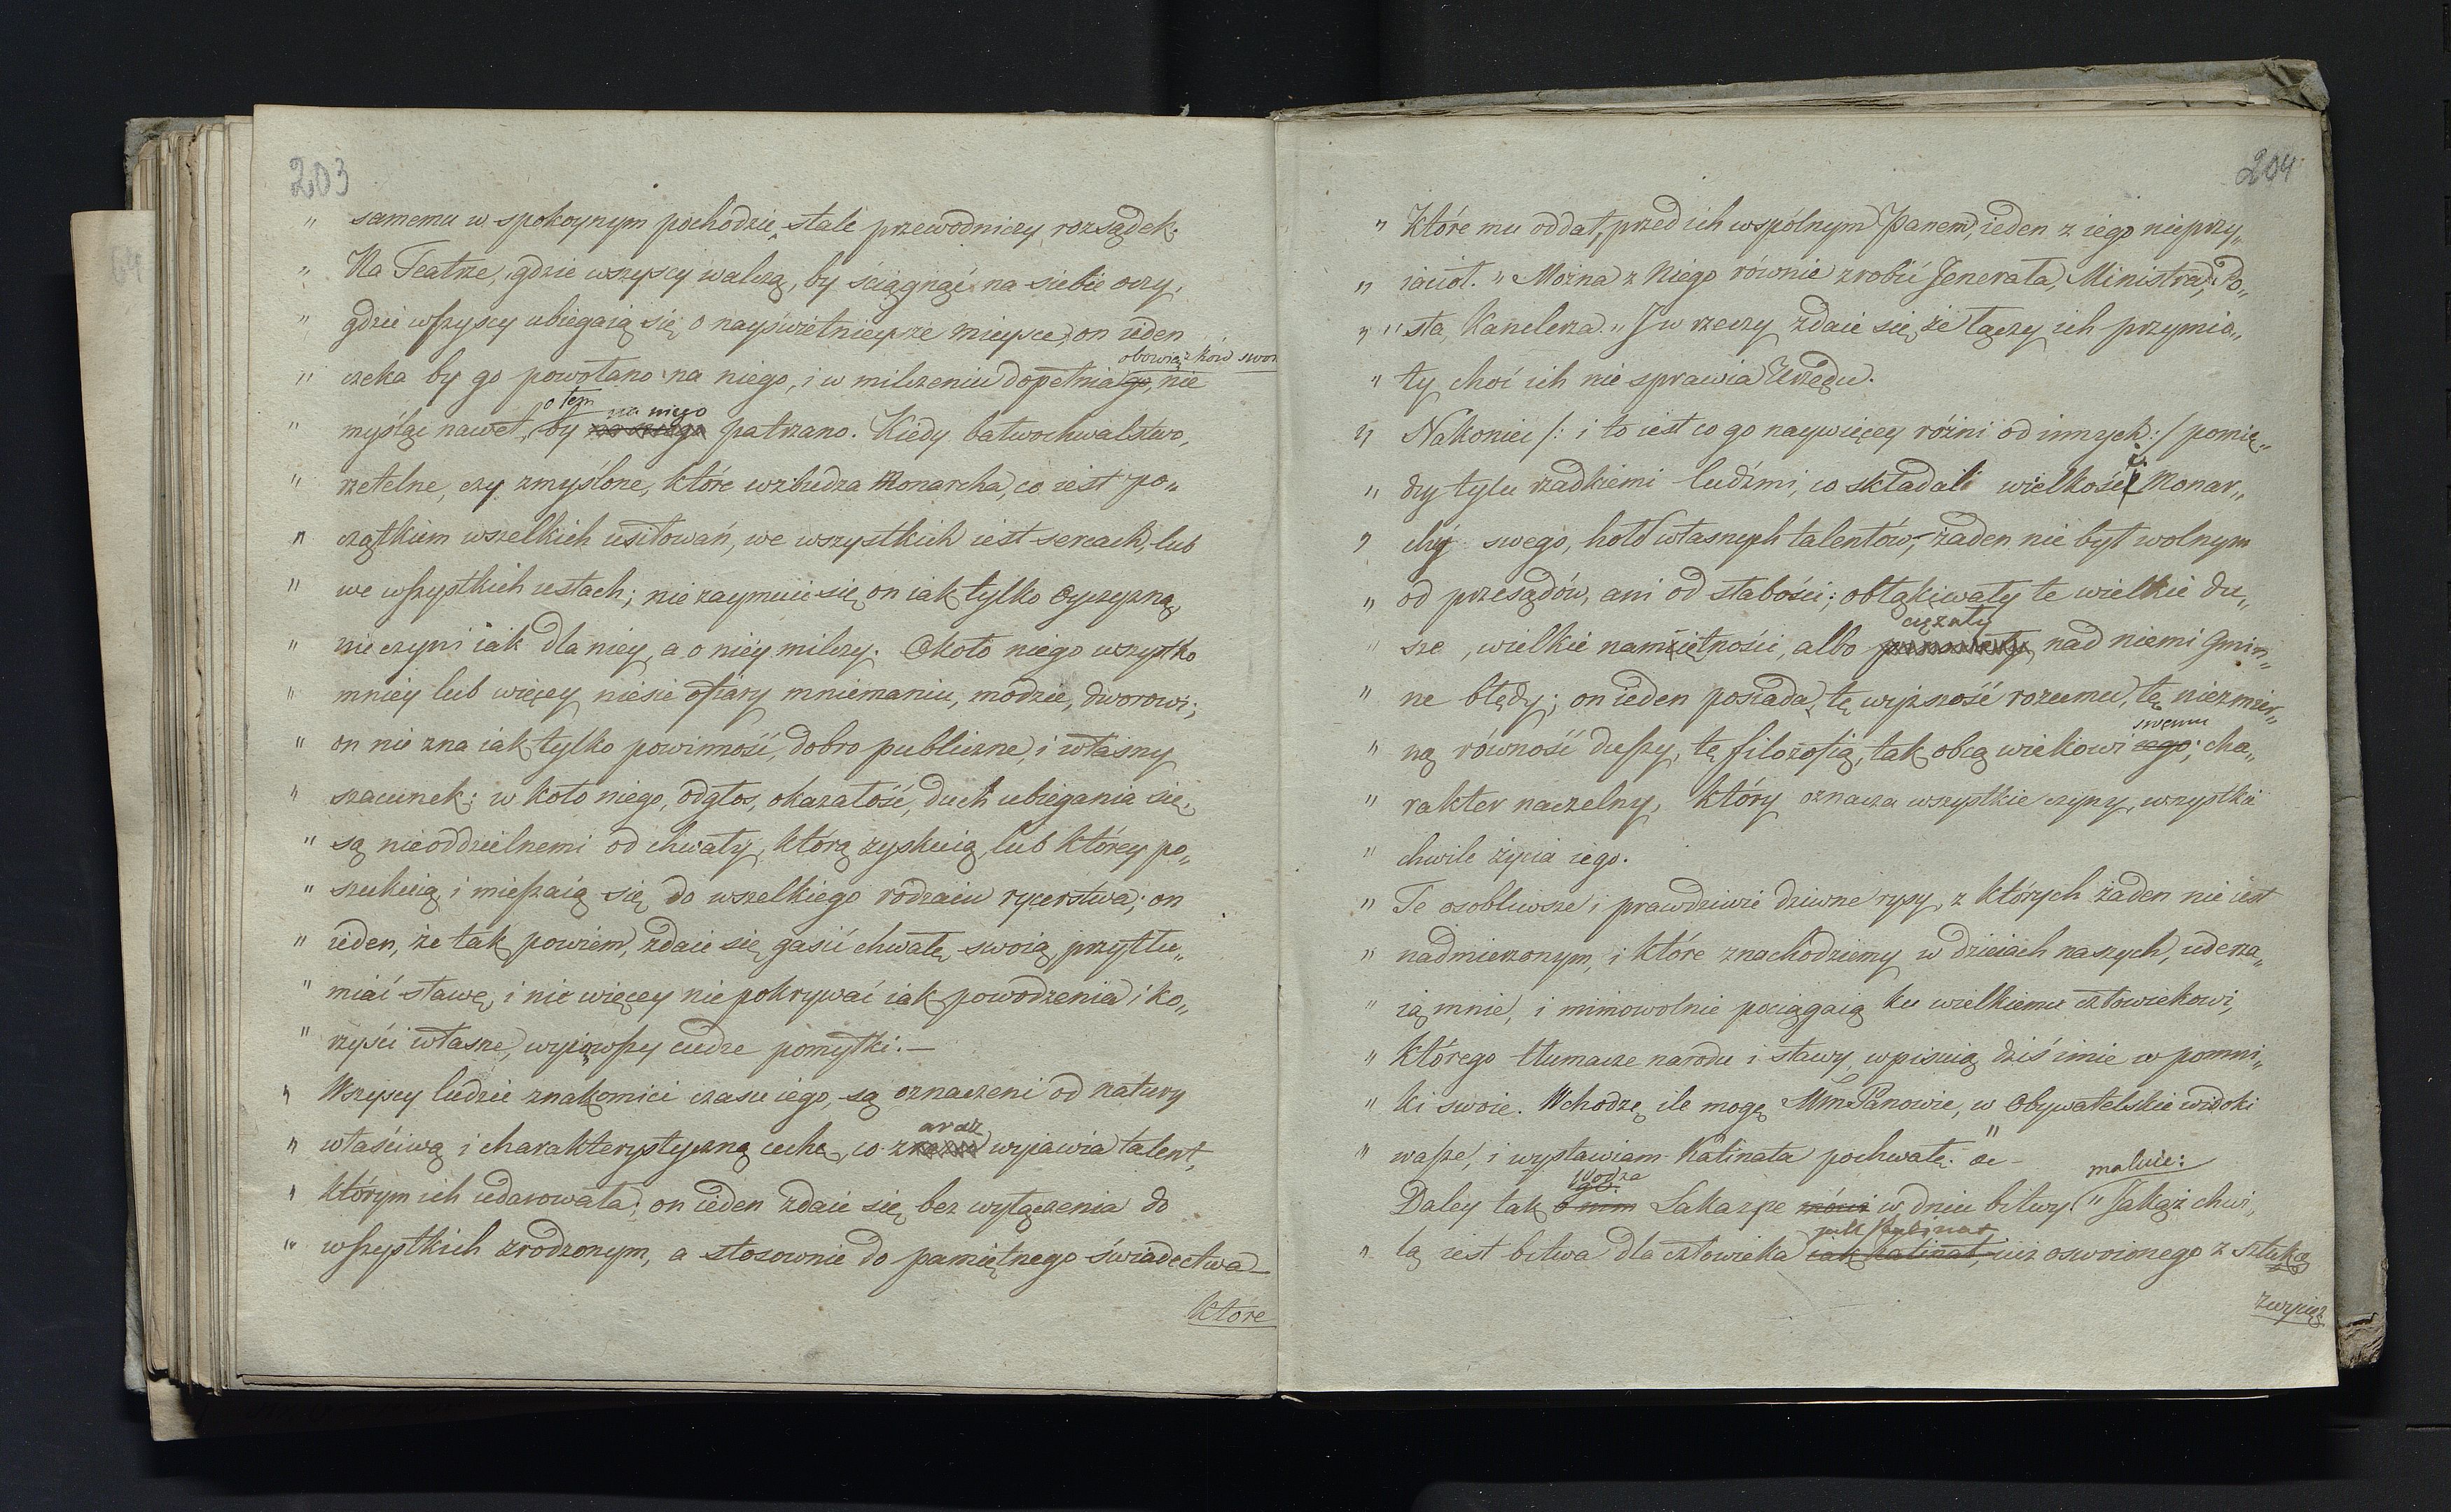 203
" samemu w spokoynym pochodzie, stale przewodniczy rozsądek;
" Na Teatrze, gdzie wszyscy walczą, by ściągnąć na siebie oczy,
" gdzie wszyscy ubiegaią się o nayświetnieysze mieysce, on ieden
obowiązków swoi
" czeka by go powołano na niego, i w milczeniu dopełnia go, nie
o tem na niego
" myśląc nawet, by patrzano. Kiedy bałwochwalstwo,
" rzetelne, czy zmyślone, które wzbudza Monarcha, co iest po„
" czątkiem wszelkich usiłowań, we wszystkich iest sercach, lub
" we wszystkich ustach; nie zaymuie się on iak tylko Oyczyzną,
" nie czyni iak dla niey, a o niey milczy. Około niego wszystko
" mniey lub więcey niesie ofiary mniemaniu, modzie, dworowi;
" on nie zna iak tylko powinność, dobro publiczne, i własny
" szacunek; w koło niego, odgłos, okazałość, duch ubiegania się,
" są nieoddzielnemi od chwały, którą zyskuią, lub którey po„
" szukuią, i mieszaią się do wszelkiego rodzaiu rycerstwa; on
" ieden, że tak powiem, zdaie się gasić chwałę swoią, przytłu„
" miać sławę, i nic więcey nie pokrywać iak powodzenia i ko„
" rzyści własne, wyiąwszy cudze pomyłki. —
" Wszyscy ludzie znakomici czasu iego, są oznaczeni od natury
araz
" właściwą i charakterystyczną cechą, co z wyiawia talent,
" którym ich udarowała; on ieden zdaie się bez wyłączenia do
" wszystkich zrodzonym, a stosownie do pamiętnego świadectwa
które
204
" Które mu oddał, przed ich wspólnym Panem, ieden z iego nieprzy„
" iaciół. „ Można z Niego równie zrobić Jenerała, Ministra, Po„
" " sła, Kanclerza. „ I w rzeczy zdaie się, że łączy ich przymio„
" ty, choć ich nie sprawia Urzędu.
" Nakoniec /: i to iest co go naywięcey różni od innych :/ pomię„
" dzy tylu rzadkiemi ludźmi, co składali wielkości Monar„
" chy swego, hołd własnych talentów, żaden nie był wolnym
" od przesądów, ani od słabości; obłąkiwały te wielkie du„
ciężały
" sze, wielkie namiętności, albo nad niemi Gmin„
" ne błędy; on ieden posiada, tę wyższość rozumu, tę niezmier„
swemu
" ną równość duszy, tę filozofią, tak obcą wiekowi iego; cha„
" rakter naczelny, który oznacza wszystkie czyny, wszystkie
" chwile życia iego.
" Te osobliwsze i prawdziwie dziwne rysy, z których żaden nie iest
" nadmierzonym, i które znachodziemy w dzieiach naszych, uderza„
" ią mnie, i mimowolnie pociągaią ku wielkiemu człowiekowi,
" którego tłumacze narodu i sławy, wpisuią dziś imie w pomni„
" ki swoie. Wchodzę, ile mogę MmPanowie, w Obywatelskie widoki
" wasze, i wystawiam Katinata pochwałę. &c —
Wodza maluie:
Daley tak o nim Laharpe mówi w dniu bitwy " Jakąż chwi„
jak Katinat
" lą iest bitwa dla człowieka iak Katinat, iuż oswoionego z sztuką
zwycięż